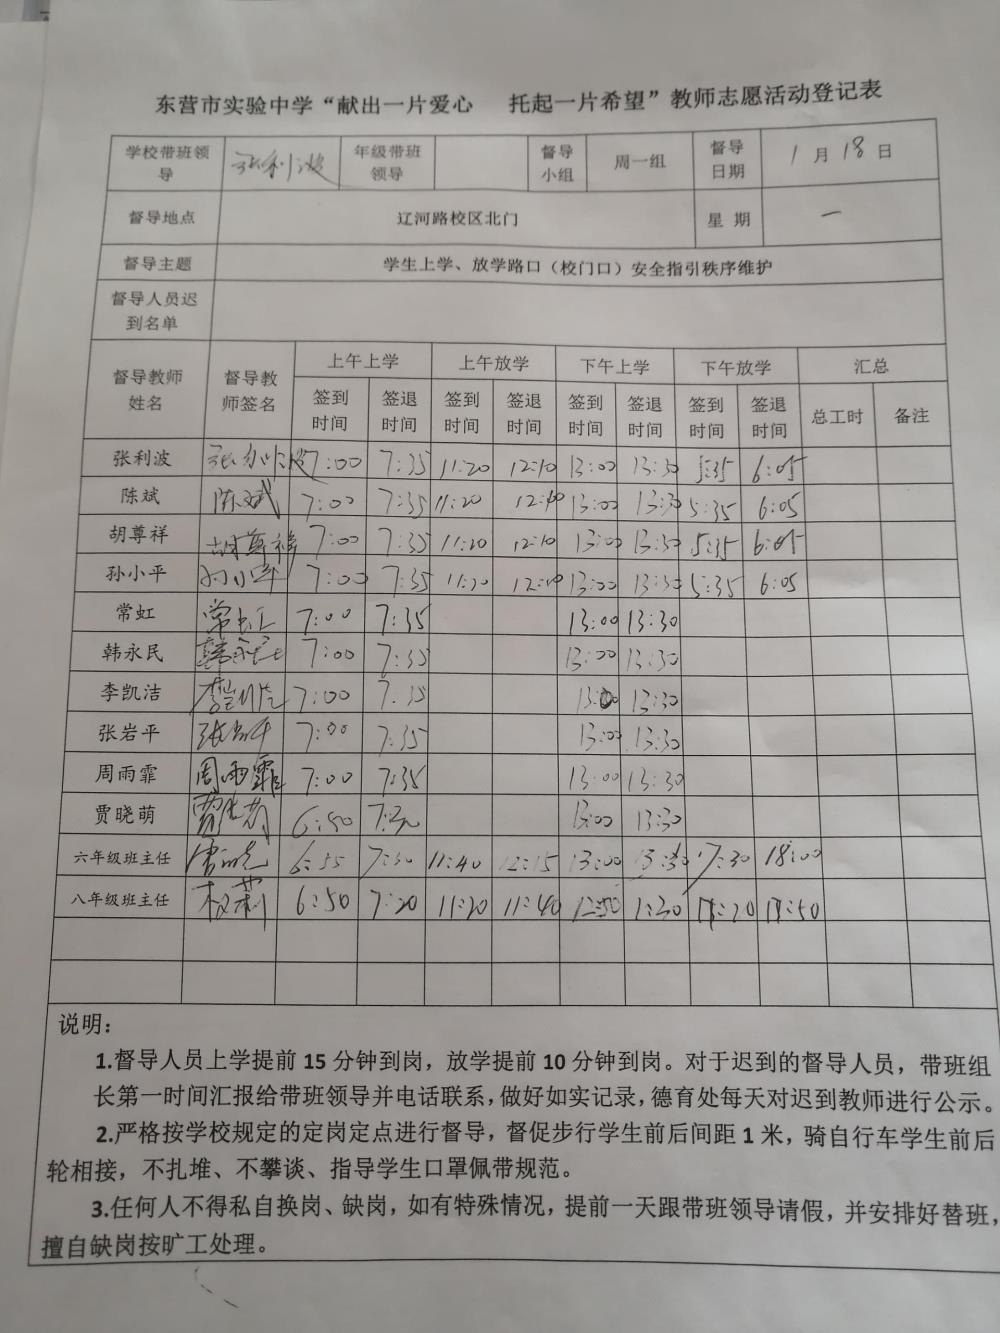 东营市实验中学“献出一片爱心 托起一片希望”教师志愿活动登记表
学校带班领导 张利波 年级带班领导 督导小组 周一组 督导日期 1月18日
督导地点 辽河路校区北门 星期 一
督导主题 学生上学、放学路口（校门口）安全指引秩序维护
督导人员迟到名单
督导教师姓名 督导教师签名 上午上学 上午放学 下午上学 下午放学 汇总
签到时间 签退时间 签到时间 签退时间 签到时间 签退时间 签到时间 签退时间 总工时 备注
张利波 张利波 7:00 7:35 11:20 12:10 13:00 13:30 5:35 6:05
陈斌 陈斌 7:00 7:35 11:20 12:10 13:00 13:30 5:35 6:05
胡尊祥 胡尊祥 7:00 7:35 11:20 12:10 13:00 13:30 5:35 6:05
孙小平 孙小平 7:00 7:35 11:20 12:10 13:00 13:30 5:35 6:05
常虹 常虹 7:00 7:35 13:00 13:30
韩永民 韩永民 7:00 7:35 13:00 13:30
李凯洁 李凯洁 7:00 7:35 13:00 13:30
张岩平 张岩平 7:00 7:35 13:00 13:30
周雨霏 周雨霏 7:00 7:35 13:00 13:30
贾晓萌 贾晓萌 6:50 7:30 13:00 13:30
六年级班主任 6:55 7:30 11:40 12:15 13:00 13:30 17:30 18:00
八年级班主任 权莉 6:50 7:20 11:20 11:40 12:50 1:20 17:20 17:50
说明：
1.督导人员上学提前 15 分钟到岗，放学提前 10 分钟到岗。对于迟到的督导人员，带班组
长第一时间汇报给带班领导并电话联系，做好如实记录，德育处每天对迟到教师进行公示。
2.严格按学校规定的定岗定点进行督导，督促步行学生前后间距 1 米，骑自行车学生前后
轮相接，不扎堆、不攀谈、指导学生口罩佩带规范。
3.任何人不得私自换岗、缺岗，如有特殊情况，提前一天跟带班领导请假，并安排好替班，
擅自缺岗按旷工处理。